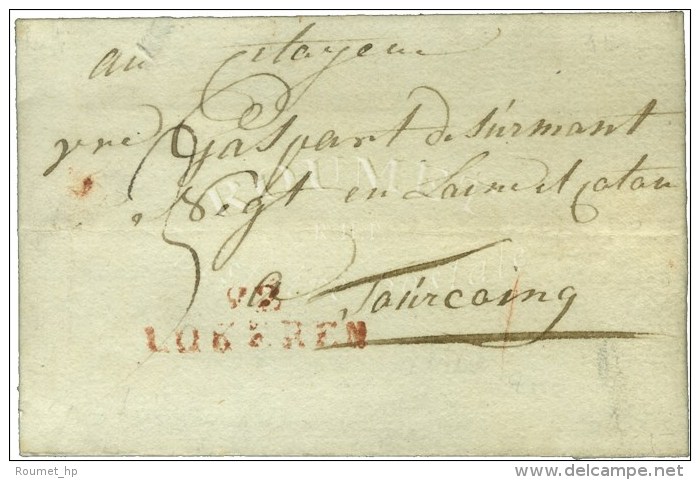 au Citoyen
pre Gaspart Desurmont
Negt en Laine et Coton
a Tourcoing
92
LOKEREN
ROUMET
Roumet_hp
delcampe.net